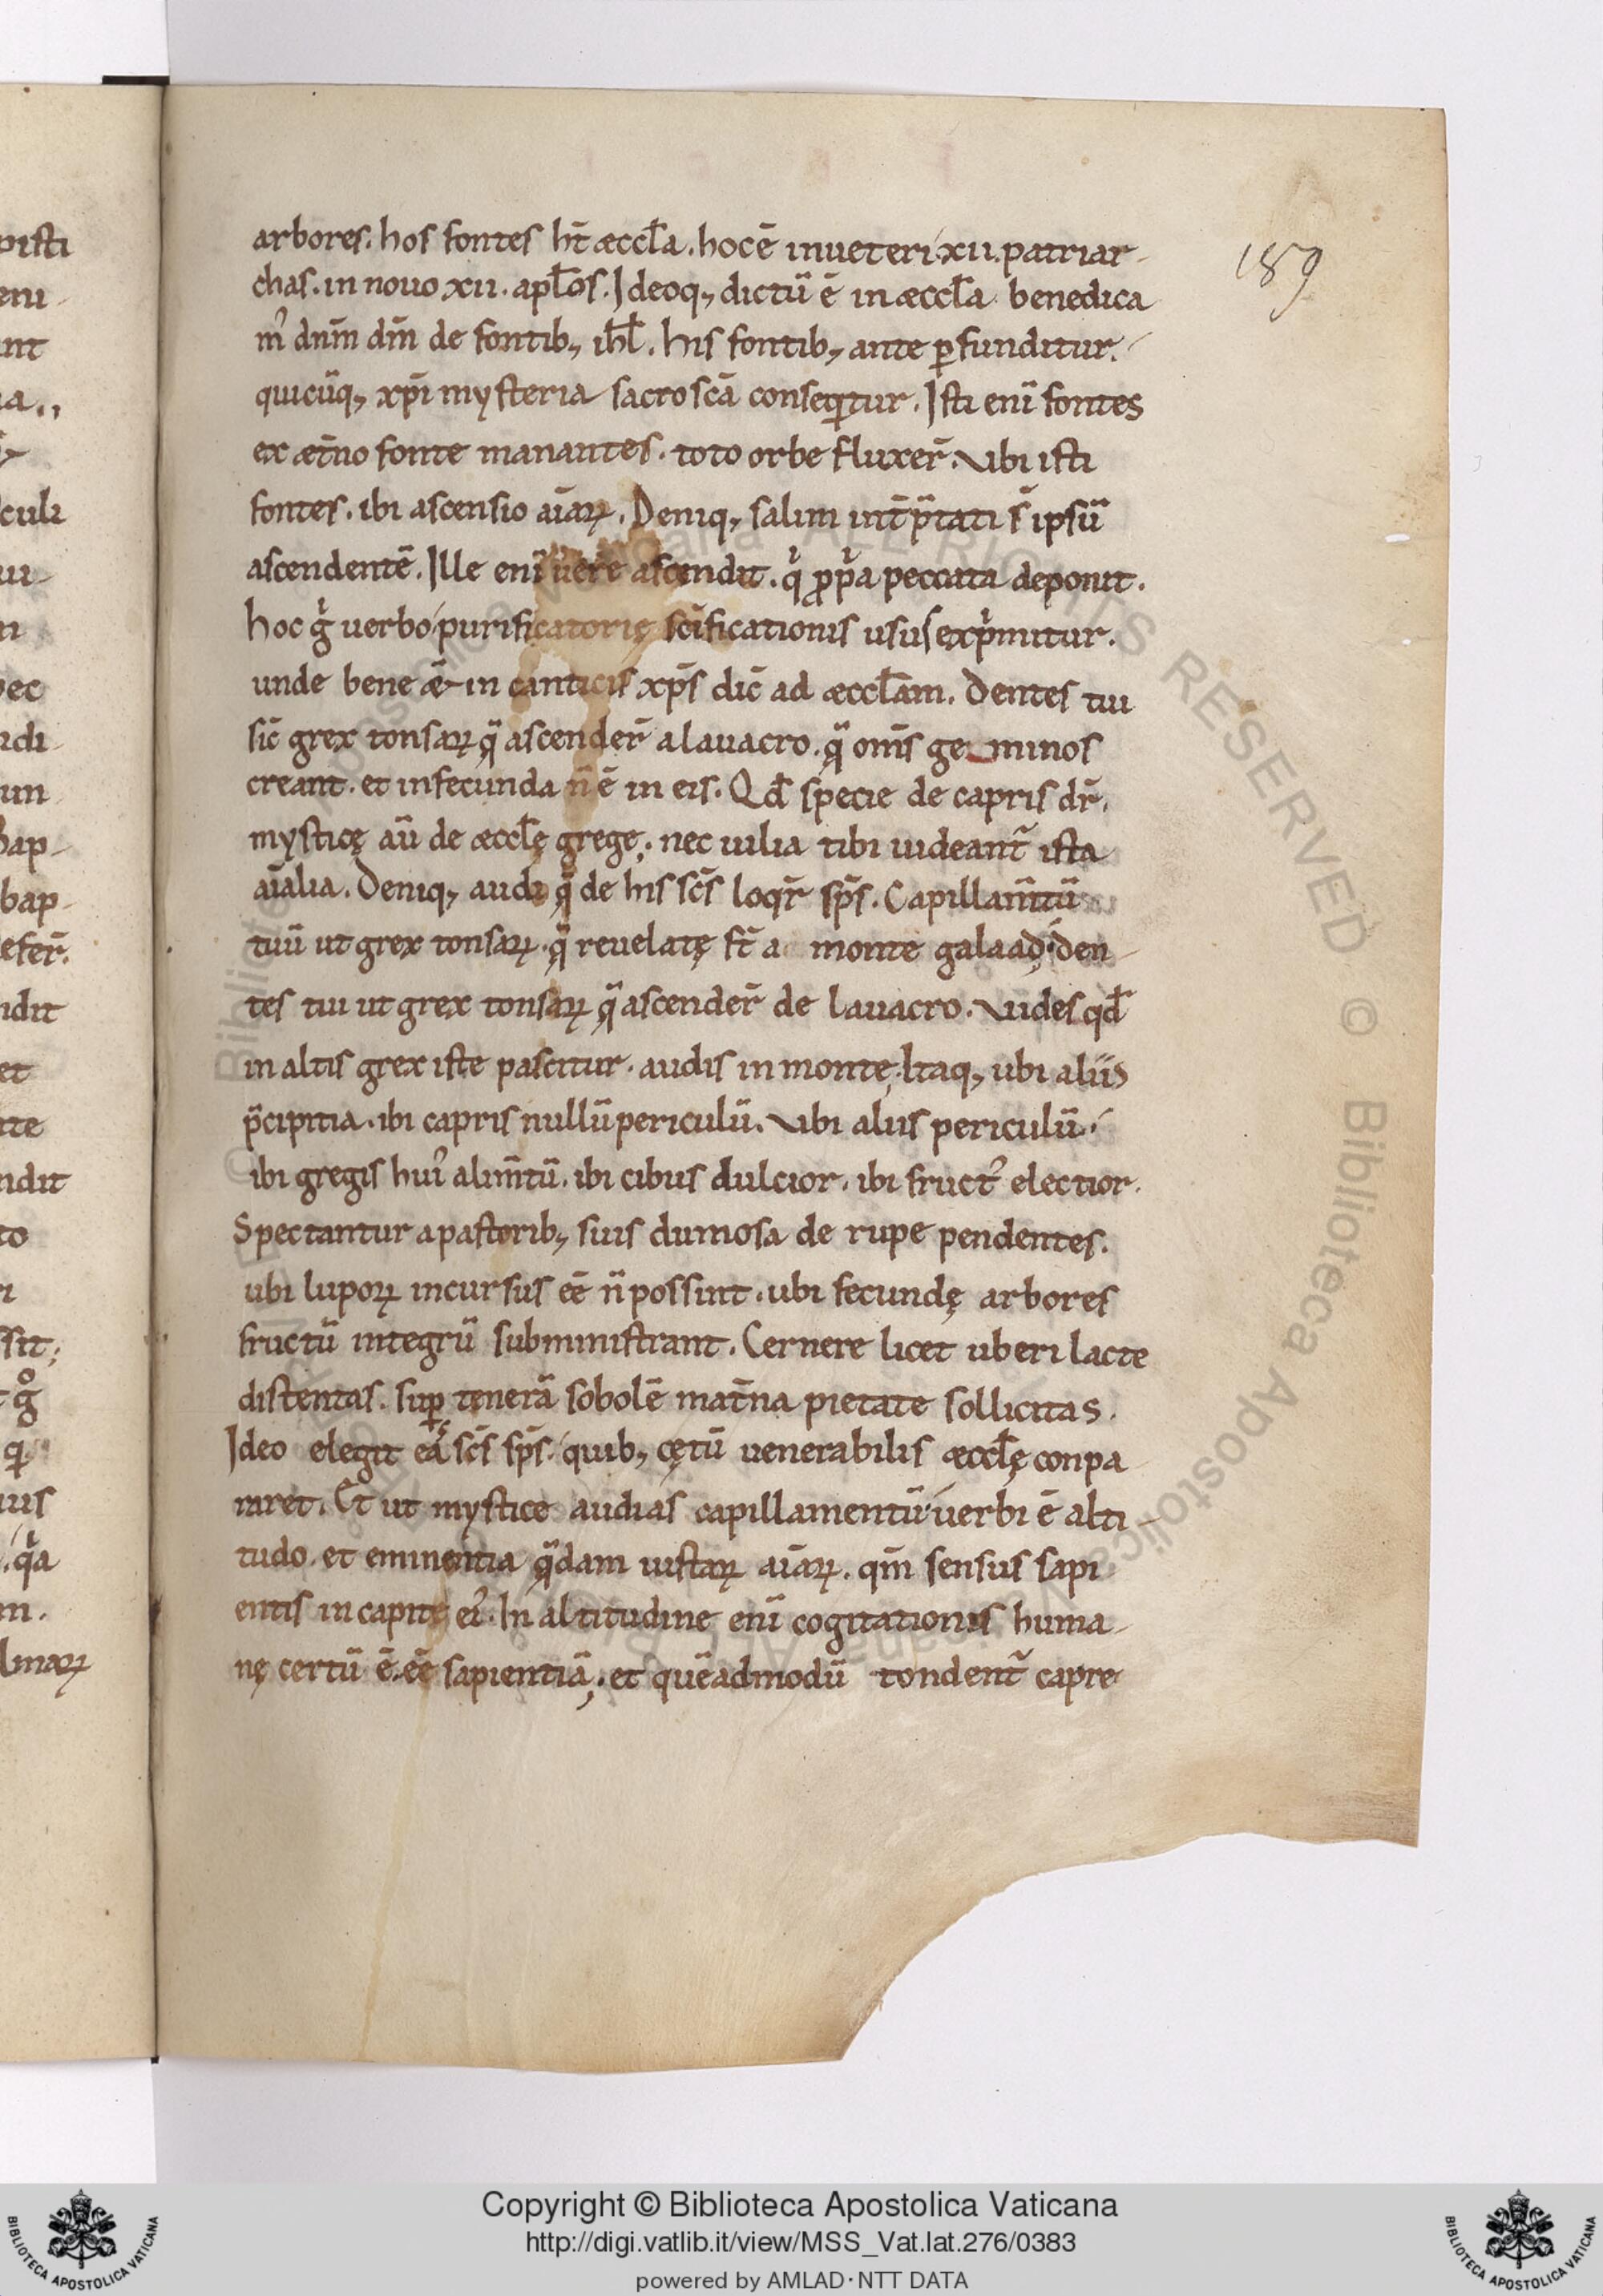 arbores. hos fontes ht̄ æccl̄a. hoc ē in ueteri xii. patriar-
chas. in nouo xii. apl̄os. Ideoq; dictū ē in æccl̄a benedica
m᾽ dn̄m dm̄ de fontib; ihl̄. his fontib; ante ꝑfunditur.
quicūq; xp̄i mysteria sacroscā conseq̄tur. Isti enī fontes
ex æt̄no fonte manantes. toto orbe fluxer̄. Vbi isti
fontes. ibi ascensio aīaꝝ. Deniq; salim int̄p̄tati s̄ ipsū
ascendentē. Ille enī uere ascendit. qͥ ꝓpͥa peccata deponit.
hoc gͥ uerbo purificatorię scīficationis usus expͥmitur.
unde bene & in canticis xp̄s dic̄ ad æccl̄am. Dentes tui
sic̄ grex tonsaꝝ q̄ ascender̄ a lauacro. q̄ om̄s geminos
creant. et infecunda n̄ ē in eis. Qd̄ specie de capris dr̄.
mysticę aū de æccl̄ę grege. nec uilia tibi uideant᷑ ista
aīalia. Deniq; audi q̄ de his sc̄s loqr̄ sp̄s. Capillam̄tū
tuū ut grex tonsaꝝ. q̄ reuelatę st̄ a monte galaad. den-
tes tui ut grex tonsaꝝ q̄ ascender̄ de lauacro. Vides qd̄
in altis grex iste pascitur. audis in monte. Itaq; ubi aliis
p̄cipitia. ibi capris nullū periculū. Vbi aliis periculū.
ibi gregis hui᾽ alim̄tū. ibi cibus dulcior. ibi fruct᾽ electior.
Spectantur a pastorib; suis dumosa de rupe pendentes.
ubi lupoꝝ incursus eē n̄ possint. ubi fecundę arbores
fructū integrū subministrant. Cernere licet uberi lacte
distentas. suꝑ tenerā sobolē mat̄na pietate sollicitas.
Ideo elegit eas sc̄s sp̄s. quib; cętū uenerabilis æccl̄ę conpa
raret. Et ut mystice audias capillamentū uerbi ē alti-
tudo. et eminentia q̄dam iustaꝝ aīaꝝ. qm̄ sensus sapi
entis in capite ei᾽. In altitudine enī cogitationis huma-
nę certū ē. eē sapientiā. et quēadmodū tondent᷑ capre
189
pisti
eni-
nt
ia.,
culi
ui-
n
ec
idi-
un
bap-
bap-
efer̄.
ndit
et
te
ndit
to
ri
ssit;
uus
. qͣa
m.
lmaꝝ
© Biblioteca Apostolica Vaticana ALL RIGHTS RESERVED
© Biblioteca Apostolica Vaticana ALL RIGHTS RESERVED
Copyright © Biblioteca Apostolica Vaticana
http://digi.vatlib.it/view/MSS_Vat.lat.276/0383
powered by AMLAD·NTT DATA
BIBLIOTECA APOSTOLICA VATICANA
BIBLIOTECA APOSTOLICA VATICANA